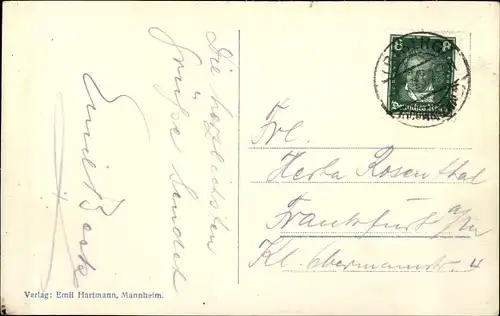 Die herzlichsten
Grüße sendet
Emil
Frl.
Herta Rosenthal
Frankfurt a/M
Kl. Obermainstr. 4
8 8
Deutsches Reich
Verlag: Emil Hartmann, Mannheim.